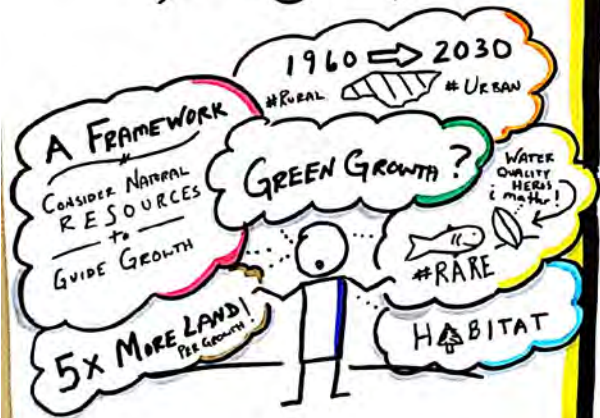 1960 ⇨ 2030
#RURAL #URBAN
A FRAMEWORK
CONSIDER NATURAL
RESOURCES
to
GUIDE GROWTH
GREEN GROWTH?
WATER
QUALITY
HEROS
i matter!
#RARE
5X MORE LAND!
PER GROWTH
HABITAT